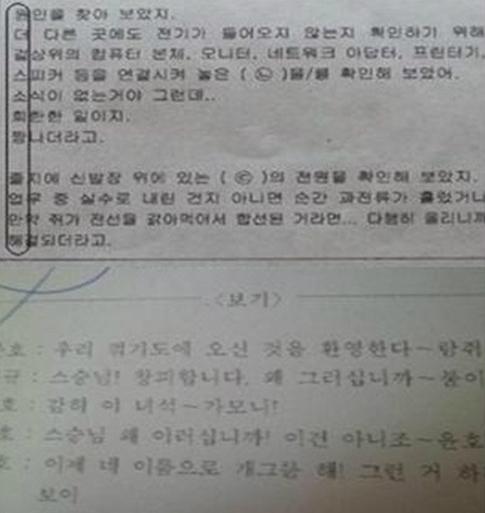 원인을 찾아 보았지.
더 다른 곳에도 전기가 들어오지 않는지 확인하기 위해
걸상위의 컴퓨터 본체, 모니터, 네트워크 아답터, 프린터기,
스피커 등을 연결시켜 놓은 ( ㉡ )을/를 확인해 보았어.
소식이 없는거야 그런데..
희한한 일이지.
짱나더라고.
졸지에 신발장 위에 있는 ( ㉢ )의 전원을 확인해 보았지.
업무 중 실수로 내린 건지 아니면 순간 과전류가 흘렀거나
만약 쥐가 전선을 갉아먹어서 합선된 거라면... 다행히 올리니까
해결되더라고.
<보기>
호 : 우리 꺾기도에 오신 것을 환영한다~람쥐
규 : 스승님! 창피합니다. 왜 그러십니까~불이
호 : 감히 이 녀석~가모니!
호 : 스승님 왜 이러십니까! 이건 아니조~윤호
호 : 이제 네 이름으로 개그를 해! 그런 거 하
보이